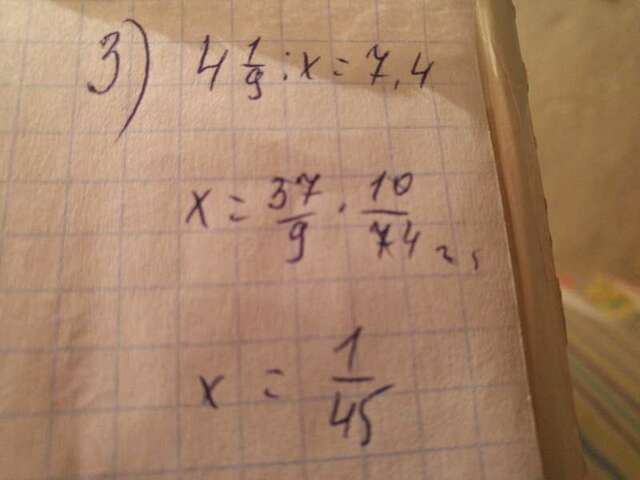 3) 4 1/9 : x = 7,4
x = 37/9 · 10/74
x = 1/45